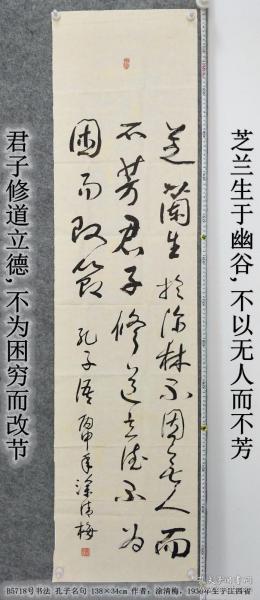 芝兰生于幽谷,不以无人而不芳
芝蘭生於深林不因無人而
不芳君子修道立德不為
困而改節 孔子語 丙申年涂清梅
君子修道立德,不为困穷而改节
B5718号书法 孔子名句 138×34cm 作者:涂清梅,1950年生于江西省